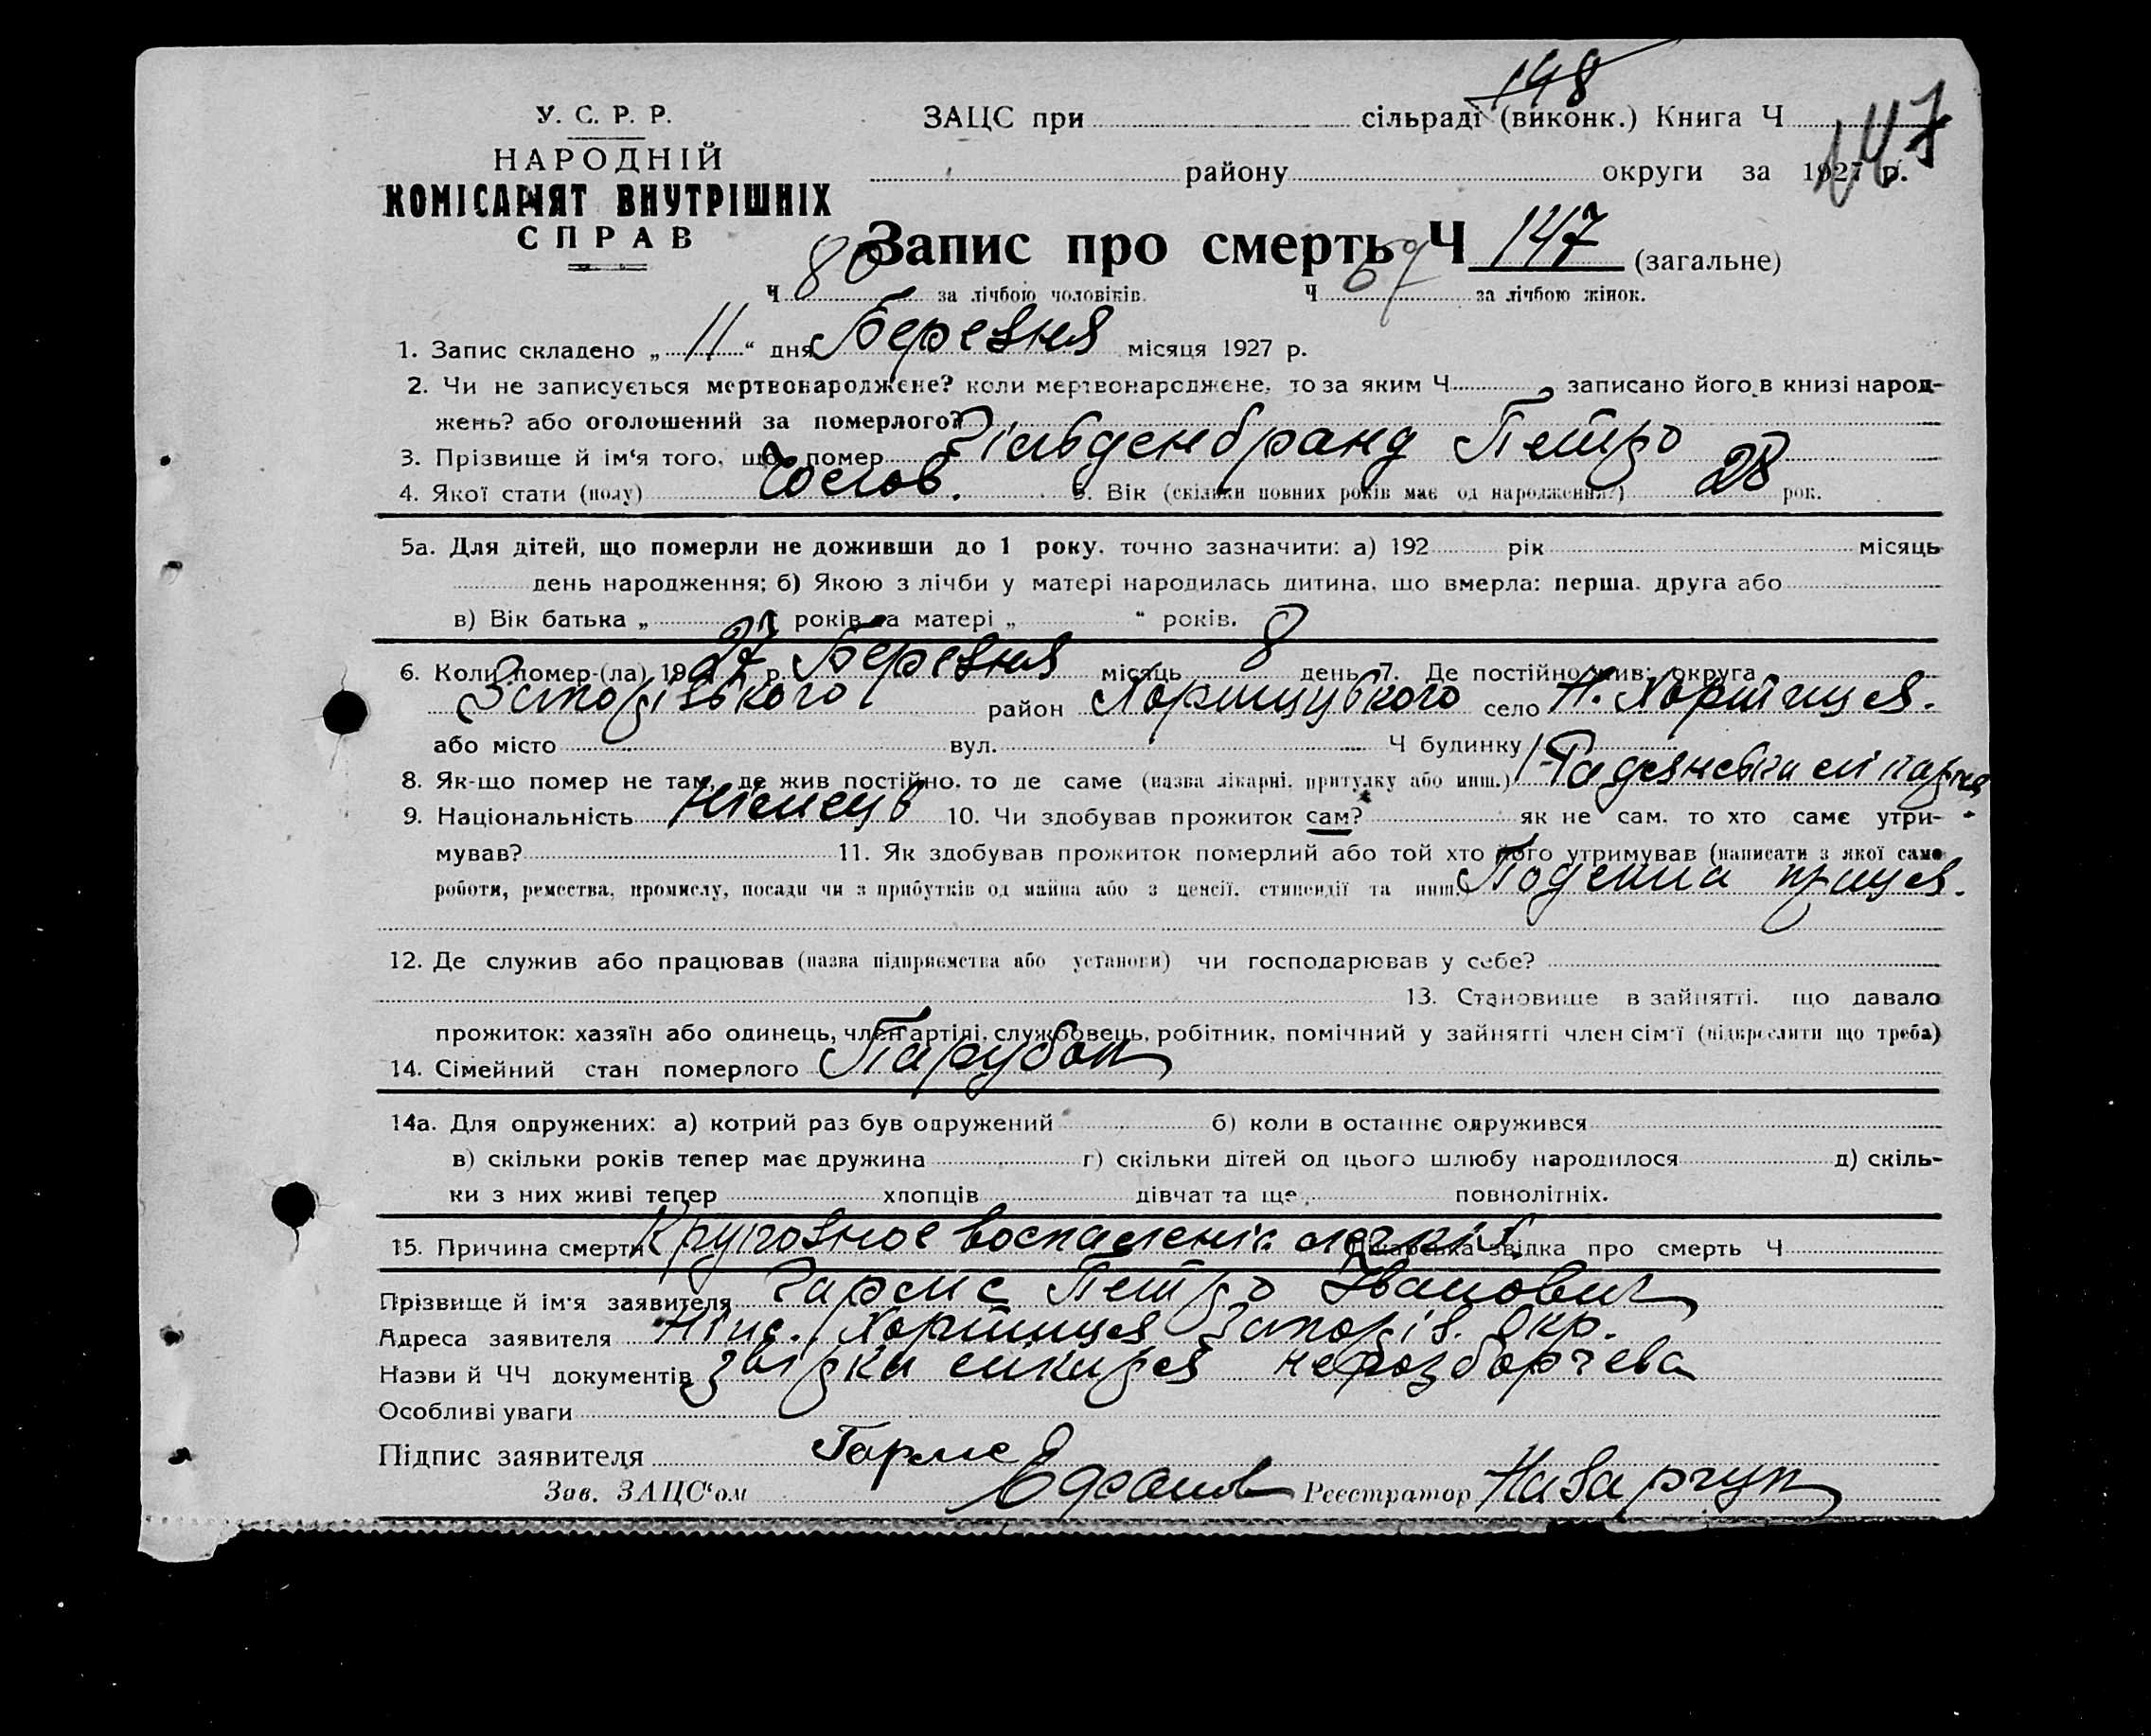 148
У. С. Р. Р.
НАРОДНІЙ
КОМІСАРІЯТ ВНУТРІШНІХ
СПРАВ
ЗАЦС при сільраді (виконк.) Книга Ч 147
району округи за 1927 р.
Запис про смерть Ч 147 (загальне)
Ч 80 за лічбою чоловіків. Ч 67 за лічбою жінок.
1. Запис складено „ 11 “ дня Березня місяця 1927 р.
2. Чи не записується мертвонароджене? коли мертвонароджене, то за яким Ч записано його в книзі народ-
жень? або оголошений за померлого?
3. Прізвище й ім'я того, що помер Гільденбранд Петро
4. Якої стати (полу) Чолов. 5. Вік (скільки повних років має од народження?) 28 рок.
5а. Для дітей, що померли не доживши до 1 року, точно зазначити: а) 192 рік місяць
день народження; б) Якою з лічби у матері народилась дитина, що вмерла: перша, друга або
в) Вік батька „ “ років та матері „ “ років.
6. Коли помер-(ла) 1927 р. Березня місяць 8 день 7. Де постійно жив: округа
Запорізького район Хортицького село Н. Хортиця.
або місто вул. Ч будинку
8. Як-що помер не там, де жив постійно, то де саме (назва лікарні, притулку або инш.) 1 Радянська лікарня
9. Національність Німець 10. Чи здобував прожиток сам? як не сам, то хто саме утри-
мував? 11. Як здобував прожиток померлий або той хто його утримував (написати з якої саме
роботи, ремества, промислу, посади чи з прибутків од майна або з пенсії, стипендії та инш.) Поденна праця.
12. Де служив або працював (назва підприємства або установи) чи господарював у себе?
13. Становище в зайнятті, що давало
прожиток: хазяїн або одинець, член артілі, службовець, робітник, помічний у зайнятті член сім'ї (підкреслити що треба)
14. Сімейний стан померлого Парубок
14а. Для одружених: а) котрий раз був одружений б) коли в останнє одружився
в) скільки років тепер має дружина г) скільки дітей од цього шлюбу народилося д) скіль-
ки з них живі тепер хлопців дівчат та ще повнолітніх.
15. Причина смерти Крупозное воспаленіе легкіх. Лікарська звідка про смерть Ч
Прізвище й ім'я заявителя Гармс Петро Іванович
Адреса заявителя Хортиця Запоріз. Окр.
Назви й ЧЧ документів звідка лікаря неразборчева
Особливі уваги
Підпис заявителя Гармс
Зав. ЗАЦС'ом Реєстратор Назарчук